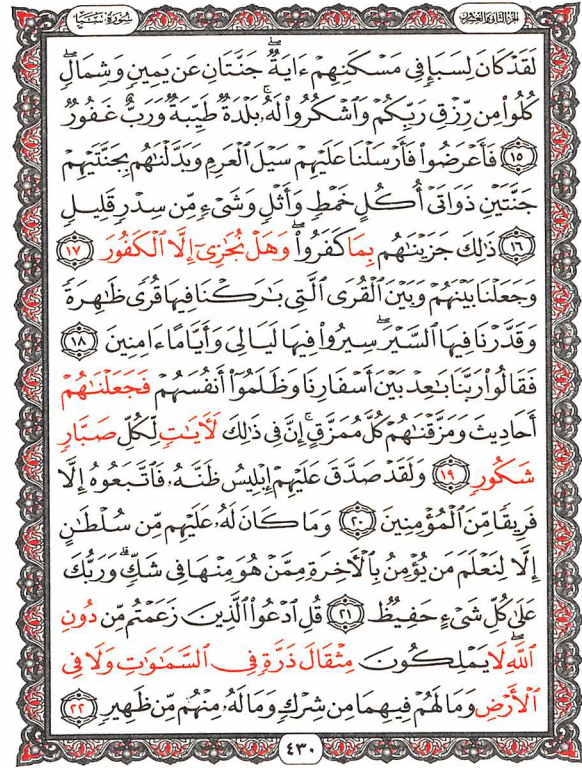 الجُزءُ الثَّانِي وَالعِشْرُونَ سُورَةُ سَبَإٍ
لَقَدْ كَانَ لِسَبَإٍ فِى مَسْكَنِهِمْ ءَايَةٌ ۖ جَنَّتَانِ عَن يَمِينٍ وَشِمَالٍ ۖ
كُلُوا۟ مِن رِّزْقِ رَبِّكُمْ وَٱشْكُرُوا۟ لَهُۥ ۚ بَلْدَةٌ طَيِّبَةٌ وَرَبٌّ غَفُورٌ
﴿١٥﴾ فَأَعْرَضُوا۟ فَأَرْسَلْنَا عَلَيْهِمْ سَيْلَ ٱلْعَرِمِ وَبَدَّلْنَٰهُم بِجَنَّتَيْهِمْ
جَنَّتَيْنِ ذَوَاتَىْ أُكُلٍ خَمْطٍ وَأَثْلٍ وَشَىْءٍ مِّن سِدْرٍ قَلِيلٍ
﴿١٦﴾ ذَٰلِكَ جَزَيْنَٰهُم بِمَا كَفَرُوا۟ ۖ وَهَلْ نُجَٰزِىٓ إِلَّا ٱلْكَفُورَ ﴿١٧﴾
وَجَعَلْنَا بَيْنَهُمْ وَبَيْنَ ٱلْقُرَى ٱلَّتِى بَٰرَكْنَا فِيهَا قُرًى ظَٰهِرَةً
وَقَدَّرْنَا فِيهَا ٱلسَّيْرَ ۖ سِيرُوا۟ فِيهَا لَيَالِىَ وَأَيَّامًا ءَامِنِينَ ﴿١٨﴾
فَقَالُوا۟ رَبَّنَا بَٰعِدْ بَيْنَ أَسْفَارِنَا وَظَلَمُوٓا۟ أَنفُسَهُمْ فَجَعَلْنَٰهُمْ
أَحَادِيثَ وَمَزَّقْنَٰهُمْ كُلَّ مُمَزَّقٍ ۚ إِنَّ فِى ذَٰلِكَ لَءَايَٰتٍ لِّكُلِّ صَبَّارٍ
شَكُورٍ ﴿١٩﴾ وَلَقَدْ صَدَّقَ عَلَيْهِمْ إِبْلِيسُ ظَنَّهُۥ فَٱتَّبَعُوهُ إِلَّا
فَرِيقًا مِّنَ ٱلْمُؤْمِنِينَ ﴿٢٠﴾ وَمَا كَانَ لَهُۥ عَلَيْهِم مِّن سُلْطَٰنٍ
إِلَّا لِنَعْلَمَ مَن يُؤْمِنُ بِٱلْءَاخِرَةِ مِمَّنْ هُوَ مِنْهَا فِى شَكٍّ ۗ وَرَبُّكَ
عَلَىٰ كُلِّ شَىْءٍ حَفِيظٌ ﴿٢١﴾ قُلِ ٱدْعُوا۟ ٱلَّذِينَ زَعَمْتُم مِّن دُونِ
ٱللَّهِ ۖ لَا يَمْلِكُونَ مِثْقَالَ ذَرَّةٍ فِى ٱلسَّمَٰوَٰتِ وَلَا فِى
ٱلْأَرْضِ وَمَا لَهُمْ فِيهِمَا مِن شِرْكٍ وَمَا لَهُۥ مِنْهُم مِّن ظَهِيرٍ ﴿٢٢﴾
٤٣٠